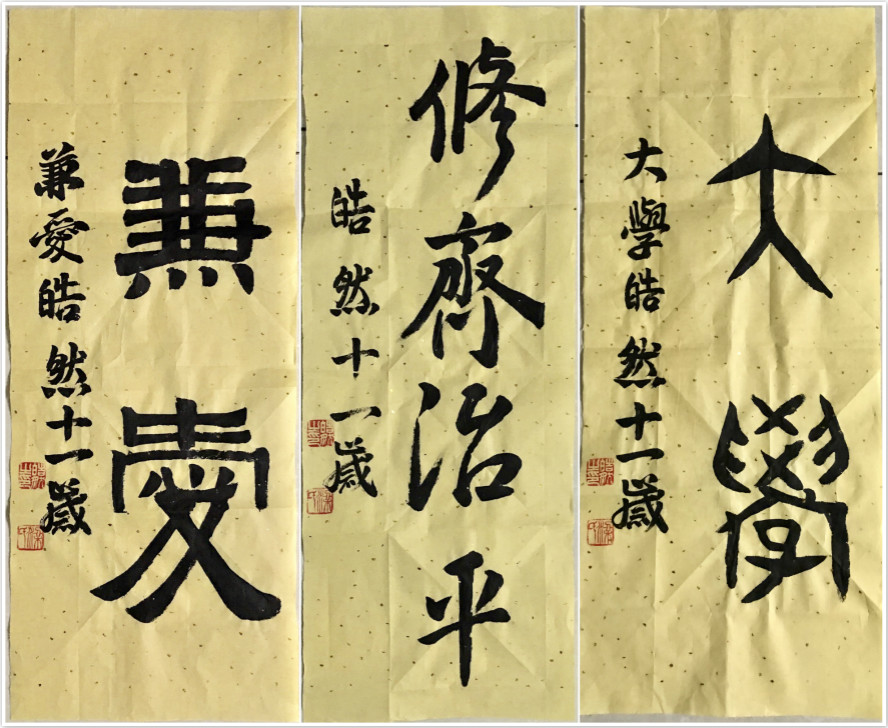 大學
大學皓然十一歲
修齋治平
皓然十一歲
兼愛
兼愛皓然十一歲